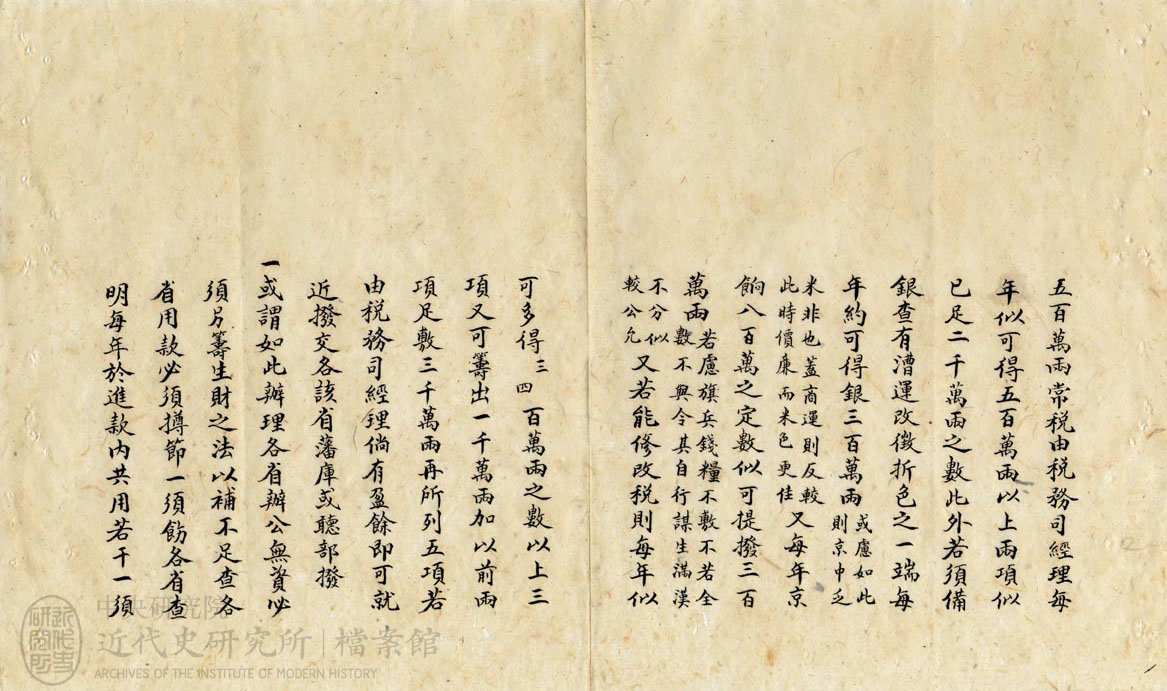 五百萬兩常税由税務司經理每
年似可得五百萬兩以上兩項似
已足二千萬兩之數此外若須備
銀查有漕運改徵折色之一端每
年約可得銀三百萬兩或慮如此則京中乏
米非也蓋商運則反較此時價廉而米色更佳又每年京
餉八百萬之定數似可提撥三百
萬兩若慮旗兵錢糧不敷不若全數不與令其自行謀生滿漢
不分似較公允又若能修改税則每年似
可多得三四百萬兩之數以上三
項又可籌出一千萬兩加以前兩
項足敷三千萬兩再所列五項若
由税務司經理倘有盈餘即可就
近撥交各該省藩庫或聽部撥
一或謂如此辦理各省辦公無資必
須另籌生財之法以補不足查各
省用款必須撙節一須飭各省查
明每年於進款內共用若干一須
中央研究院
近代史研究所|檔案館
ARCHIVES OF THE INSTITUTE OF MODERN HISTORY